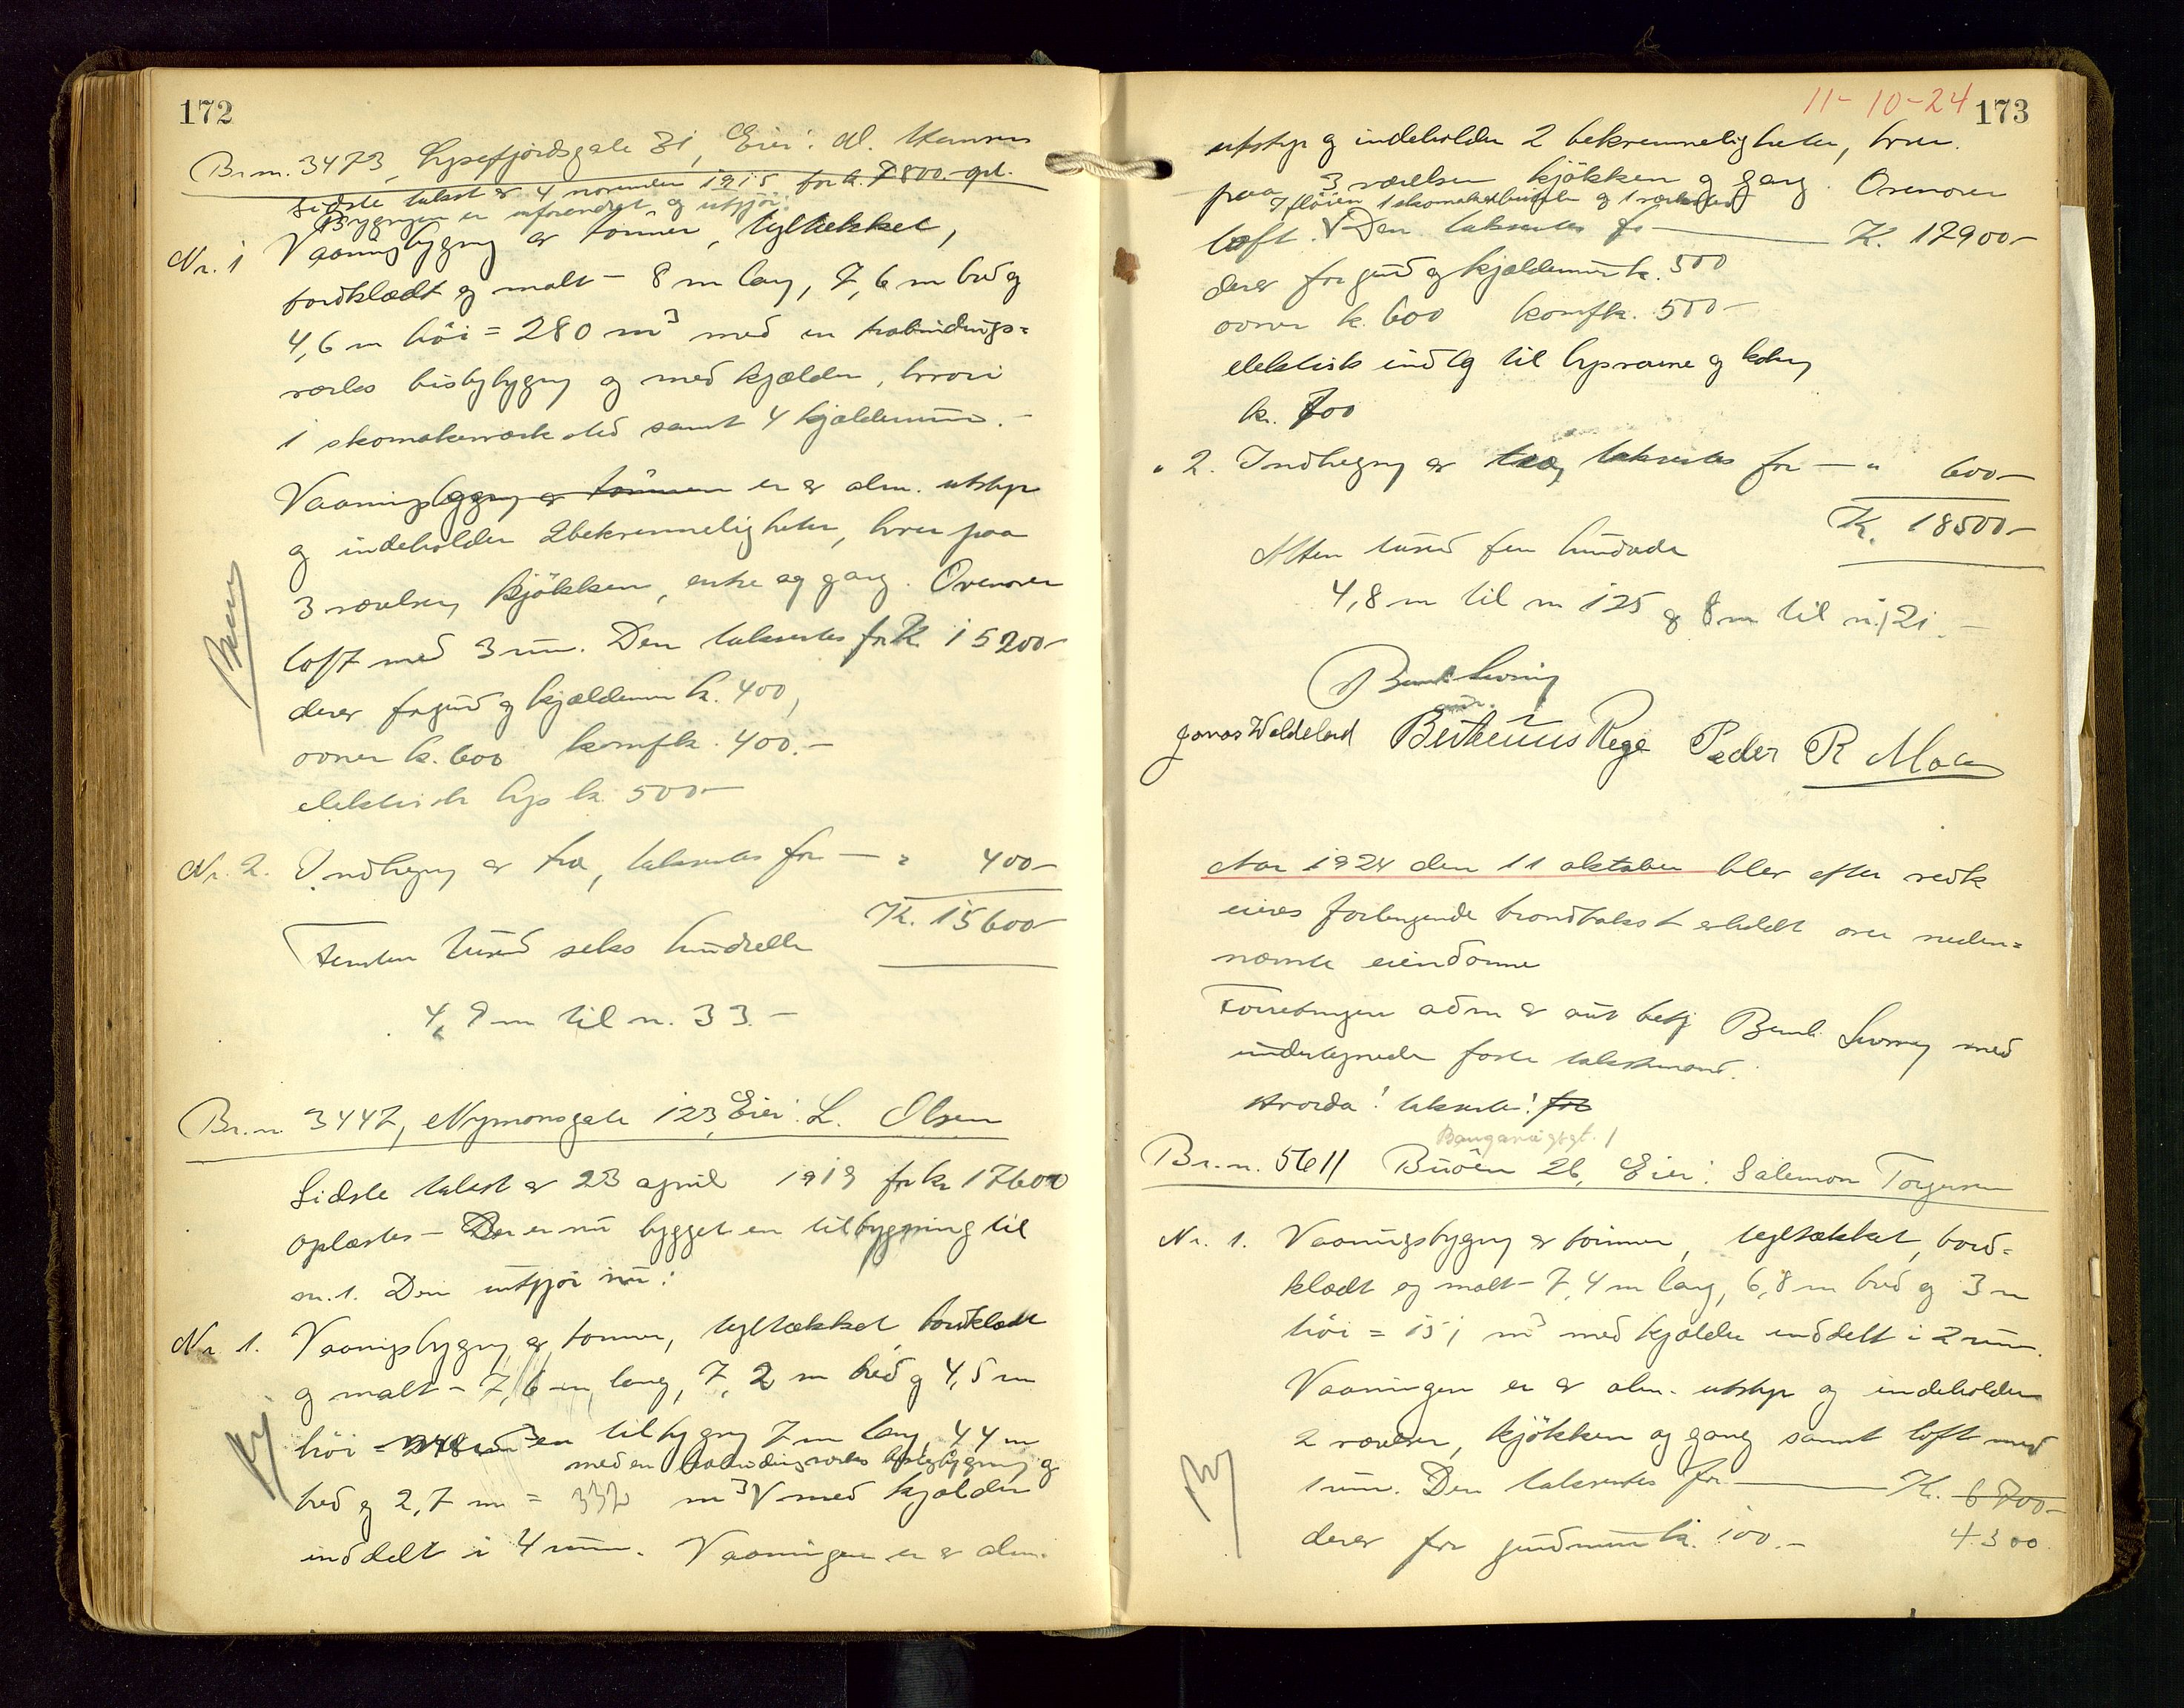 172
Br.nr. 3473, Lysefjordsgate 31, Eier: M. Hansen
Sidste takst er 4 november 1915 for kr. 7800.- opl.
Bygningen er uforandret og utgjör:
Nr. 1 Vaaningsbygng er tömmer, tegltækket,
bordklædt og malt - 8 m lang, 7,6 m bred og
4,6 m höi = 280 m³ med en utbindings=
verks bislagbygng og med kjælder, hvori
1 skomakerverksted samt 4 kjælderrum.-
Vaaningsbygng er tömmer er er alm. utstyr
og indeholder 2 bekvemmeligheter, hver paa
3 værelser, kjökken, entre og gang. Ovenover
loft med 3 rum. Den takseres for K. 15200-
derav for gru og kjælderrum kr. 400,
ovner kr. 600 komfkr. 400.-
elektrisk lys kr. 500-
Nr. 2. Indhegng er træ, takseres for - " 400-
K. 15600-
Femten tusend seks hundrede
4,9 m til n. 33.-
Br.nr. 3447, Nymonsgate 123, Eier: L. Olsen
Sidste takst er 23 april 1919 for kr 17600
oplæstes - Der er nu bygget en tilbyggning til
nr. 1. Den utgjör nu:
Nr. 1. Vaaningsbygng er tömmer, tegltækket, bordklædt
og malt - 7,6 m lang, 7,2 m bred og 4,5 m
höi = 248 m³ en tilbygng 7 m lang 4,4 m
med en utbindingsverks bislagbygning og
bred og 2,7 m = 332 m³ V med kjælder
inddelt i 4 rum. Vaaningen er er alm.
11-10-24 173
utstyr og indeholder 2 bekvemmeligheter, hver
paa 3 værelser kjökken og gang. Ovenover
I flöien 1 skomakerbutikk og 1 verksted
loft. V Den takseres for K. 17900-
derav for grund og kjælderrum kr. 500
ovner kr. 600 komfkr. 500-
elektrisk indlg til lys varme og kokng
kr. 700
" 2. Indhegng er træ, takseres for - " 600-
K. 18500-
Atten tusend fem hundrede
4,8 m til nr 125 og 8 m til nr. 121.-
Jonas Waldeland Bertheus Rege Peder R Moe
Aar 1924 den 11 oktober blev efter
eieres forlangende brandtakst avholdt over neden=
nævnte eiendomme
Forretningen adm er aut bestj Bernh. med
undertegnede faste takstmænd.
Hvorda! takserte! for
Baugarsvigsgt. 1
Br.nr. 5611 Buöen 26, Eier: Salemon Torgersen
Nr. 1. Vaaningsbygng er tömmer, tegltækket, bord=
klædt og malt - 7,4 m lang, 6,8 m bred og 3 m
höi = 151 m³ med kjælder inddelt i 2 rum.
Vaaningen er er alm. utstyr og indeholder
2 værelser, kjökken og gang samt loft med
1 rum. Den takseres for K. 6700-
derav for grundmur kr. 100.- 4300